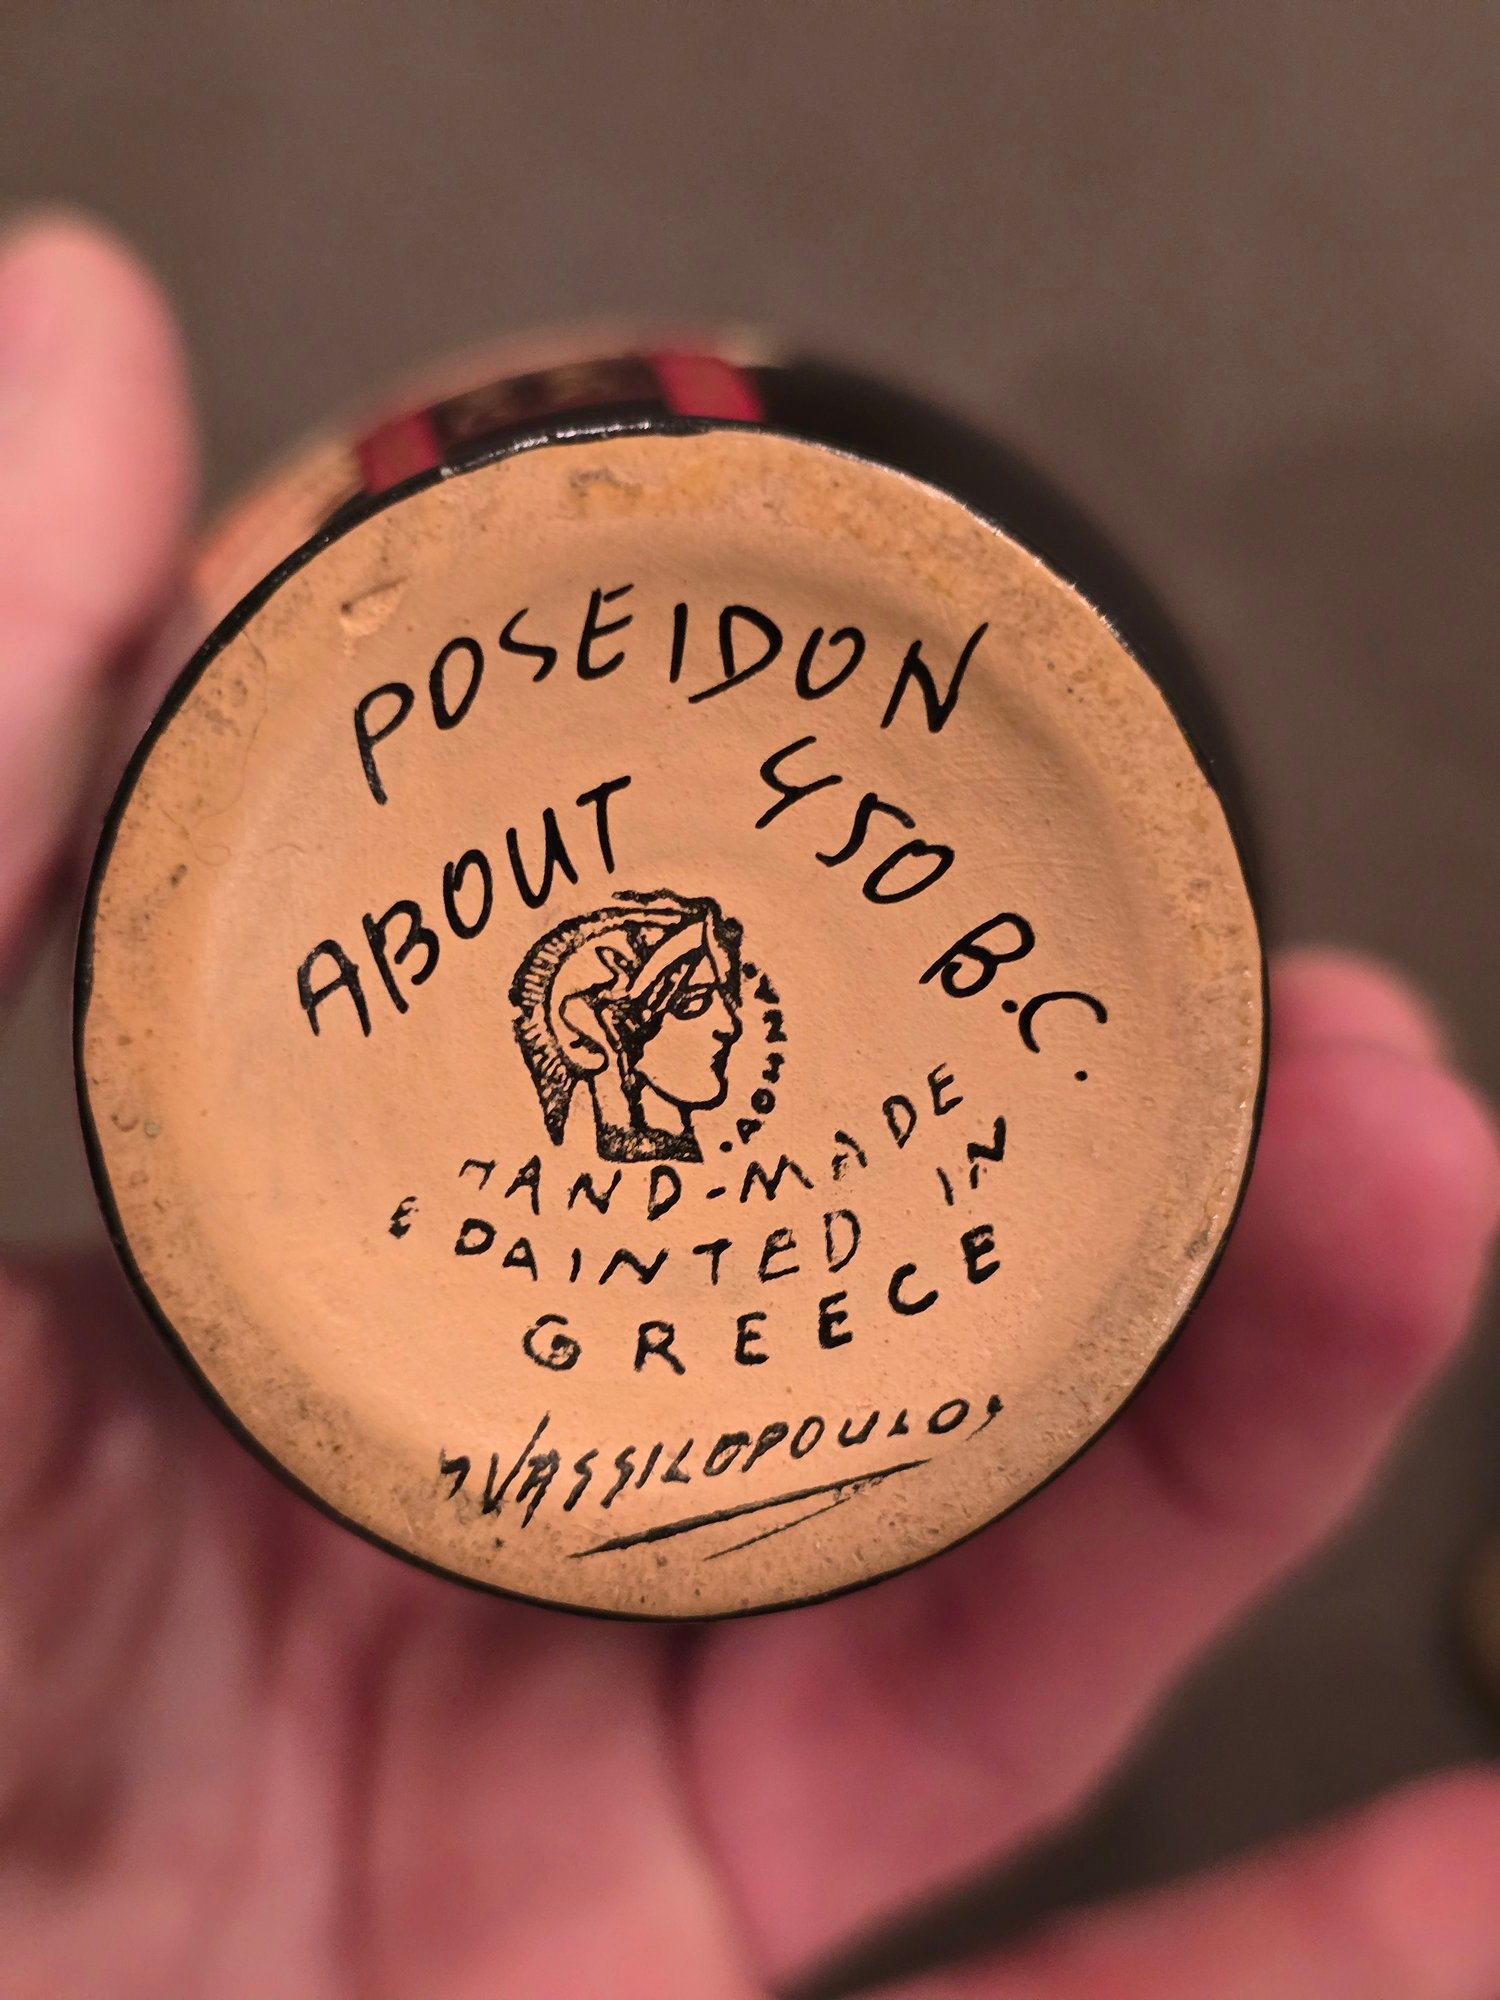 POSEIDON
ABOUT 450 B.C.
HAND-MADE
& PAINTED IN
GREECE
VASSILOPOULOS